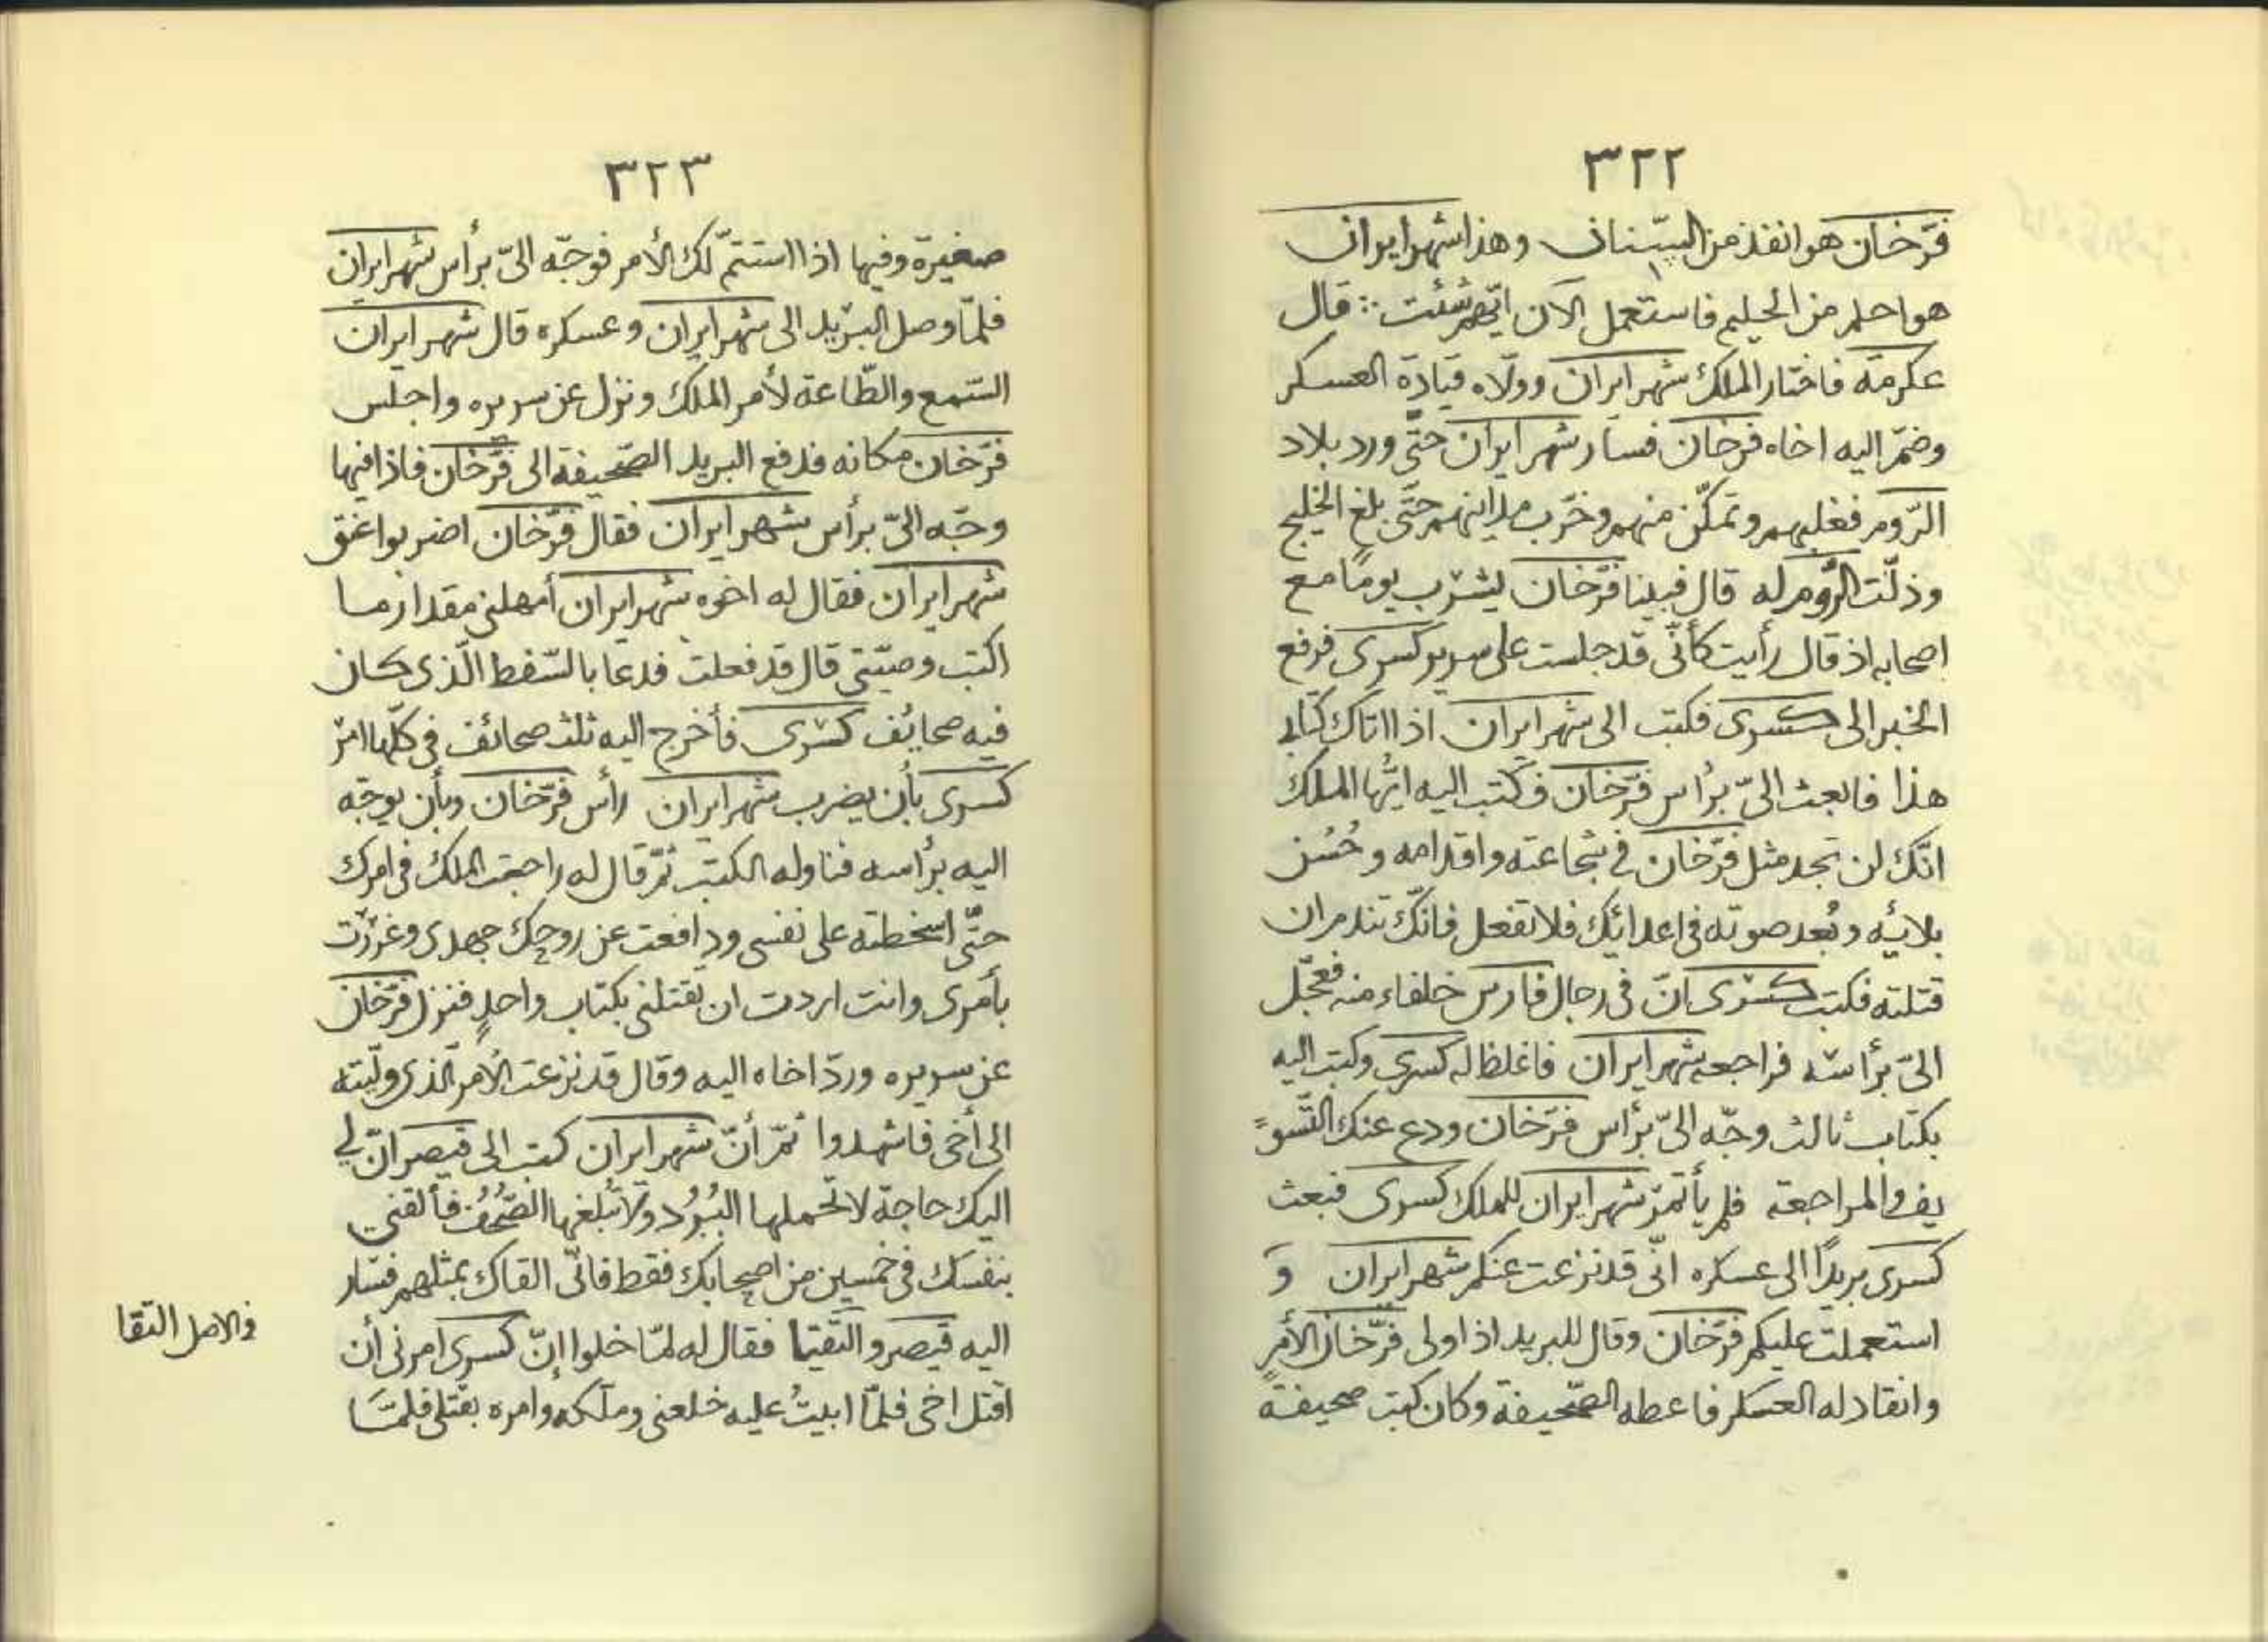 ٣٢٢
فرّخان هو انفذ من السّنان وهذا شهرايران
هو احلم من الحليم فاستعمل الآن ايّهم شئت ؞ قال
عكرمة فاختار الملك شهرايران وولّاه قيادة العسكر
وضمّ اليه اخاه فرخان فسار شهرايران حتّى ورد بلاد
الرّوم فغلبهم وتمكّن منهم وخرّب مداينهم حتّى بلغ الخليج
وذلّت الرّوم له قال فبينا فرّخان يشرب يومًا مع
اصحابه اذ قال رأيت كأنّى قد جلست على سرير كسرى فرفع
الخبر الى كسرى فكتب الى شهرايران اذا اتاك كتابى
هذا فابعث الىّ برأس فرّخان فكتب اليه ايّها الملك
انّك لن تجد مثل فرّخان فى شجاعته واقدامه وحُسن
بلائه وبُعد صوته فى اعدائك فلا تفعل فانّك تندم ان
قتلته فكتب كسرى انّ فى رجال فارس خلفاء منه فعجّل
الىّ برأسه فراجعه شهرايران فاغلظ له كسرى وكتب اليه
بكتاب ثالث وجّه الىّ برأس فرّخان ودع عنك التّسو
يف والمراجعة فلم يأتمر شهرايران للملك كسرى فبعث
كسرى بريدًا الى عسكره انّى قد نزعت عنكم شهرايران و
استعملت عليكم فرّخان وقال للبريد اذا ولى فرّخان الأمر
وانقاد له العسكر فاعطه الصّحيفة وكان كتب صحيفة
٣٢٣
صغيرة وفيها اذا استتمّ لك الأمر فوجّه الىّ برأس شهرايران
فلمّا وصل البريد الى شهرايران وعسكره قال شهرايران
السّمع والطّاعة لأمر الملك ونزل عن سريره واجلس
فرّخان مكانه فدفع البريد الصّحيفة الى فرّخان فاذا فيها
وجّه الىّ برأس شهرايران فقال فرّخان اضربوا عنق
شهرايران فقال له اخوه شهرايران أمهلنى مقدار ما
اكتب وصيّتى قال قد فعلت فدعا بالسّفط الّذى كان
فيه صحايف كسرى فأخرج اليه ثلث صحائف فى كلّها امر
كسرى بأن يضرب شهرايران رأس فرّخان وبأن يوجّه
اليه برأسه فناوله الكتب ثمّ قال له راجعت الملك فى امرك
حتّى اسخطته على نفسى ودافعت عن روحك جهدى وغرّرت
بأمرى وانت اردت ان تقتلنى بكتاب واحدٍ فنزل فرّخان
عن سريره وردّ اخاه اليه وقال قد نزعت الأمر الّذى ولّيته
الى أخى فاشهدوا ثمّ أنّ شهرايران كتب الى قيصر انّ لى
اليك حاجة لا تحملها البُرُد ولا تبلغها الصُّحُف فألقنى
بنفسك فى خمسين من اصحابك فقط فانّى القاك بمثلهم فسار
اليه قيصر والتقيا فقال له لمّا خلوا إنّ كسرى امرنى أن
اقتل اخى فلمّا ابيتُ عليه خلعنى وملّكه وامره بقتلى فلمّا
فى الاصل التقا